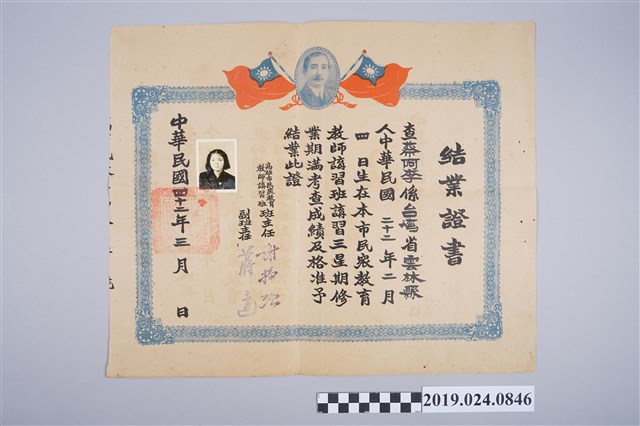 結業證書
查蔡阿李係台灣省雲林縣
人中華民國二十二年二月
四日生在本市民眾教育
教師講習班講習三星期修
業期滿考查成績及格准予
結業此證
高雄市民眾教育
教師講習班
班主任
副班主任
中華民國四十二年三月 日
2019.024.0846